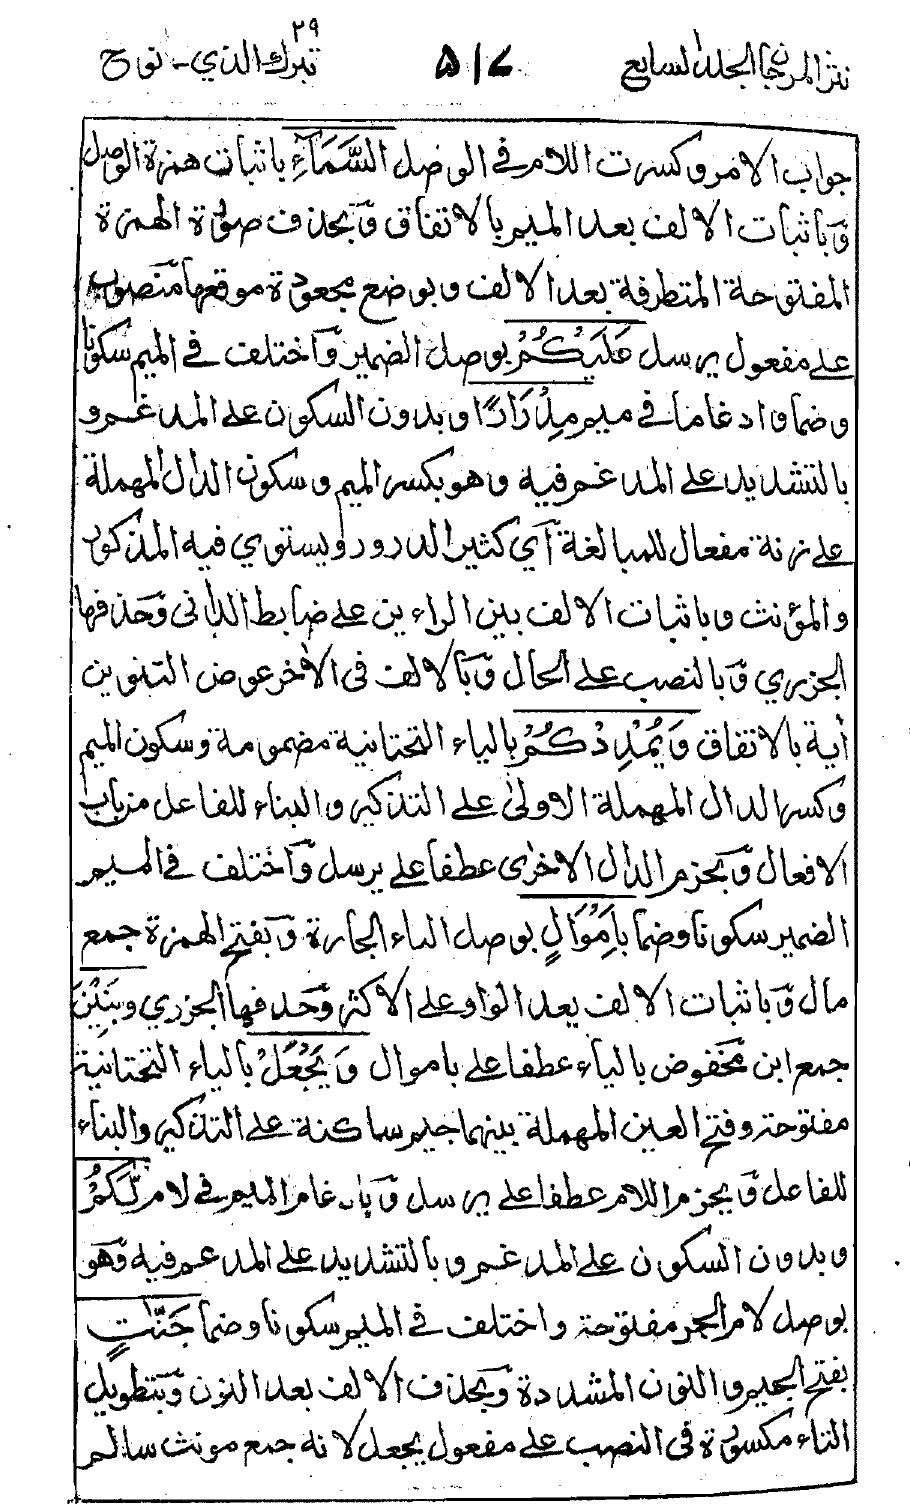 ٢٩
نثر المرجان الجلد السابع ٥١٧ تبرك الذي - نوح
جواب الامر وكسرت اللام في الوصل السَّمَآءَ باثبات همزة الوصل
وَباثبات الالف بعد الميم بالاتفاق وَبحذف صورة الهمزة
المفتوحة المتطرفة بعد الالف وبوضع مجعودة موقعها منصوب
على مفعول يرسل عَلَيْكُمْ بوصل الضمير وَاختلف في الميم سكونا
وضما وادغاما في ميم مِدْرَارًا وبدون السكون على المدغم و
بالتشديد على المدغم فيه وهو بكسر الميم وسكون الدال المهملة
على زنة مفعال للمبالغة آي كثير الدرور ويستوي فيه المذكور
والمؤنث وباثبات الالف بين الراءين على ضابط الداني وَحذفها
الجزري وَبالنصب على الحال وَبالالف في الاخر عوض التنوين
أية بالاتفاق وَيُمْدِدْكُمْ بالياء التحتانية مضمومة وسكون الميم
وكسر الدال المهملة الاولى على التذكير والبناء للفاعل من باب
الافعال وَبجزم الدال الاخرى عطفا على يرسل وَاختلف في الميم
الضمير سكونا وضما بِاَمْوَالٍ بوصل الباء الجارة وَبفتح الهمزة جمع
مال وَباثبات الالف بعد الواو على الاكثر وَحذفها الجزري وبَنِيْنَ
جمع ابن مخفوض بالياء عطفا على باموال وَيَجْعَلْ بالياء التحتانية
مفتوحة وفتح العين المهملة بينهما جيم ساكنة على التذكير والبناء
للفاعل وَبجزم اللام عطفا على يرسل وَبادغام الميم في لام لَّكُمْ
وبدون السكون على المدغم وبالتشديد على المدغم فيه وَهو
بوصل لام الجر مفتوحة واختلف في الميم سكونا وضما جَنّٰتٍ
بفتح الجيم والنون المشددة وَبحذف الالف بعد النون وَبتطويل
التاء مكسورة في النصب على مفعول يجعل لانه جمع مونث سالم